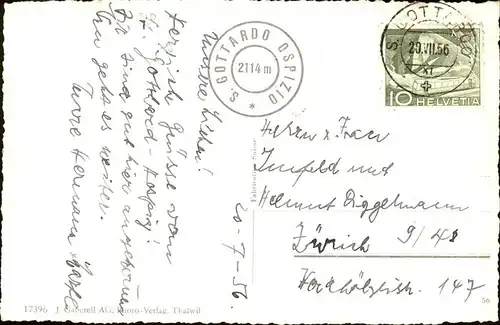 Unsere Lieben!
Herzlich Grüsse vom
St. Gotthard-Hospiz!
Wir sind gut hier angekommen
geht es weiter.
Eure Hermann
20-7-56.
S. GOTTARDO OSPIZIO
2114 m
S. GOTTARDO
20.VII.56
XI
10 HELVETIA
Herrn u. Frau
und
Helmut Diggelmann
Zürich 9/48
147
17396 J. Gaberell AG. Photo-Verlag. Thalwil
Fabrication Suisse
56